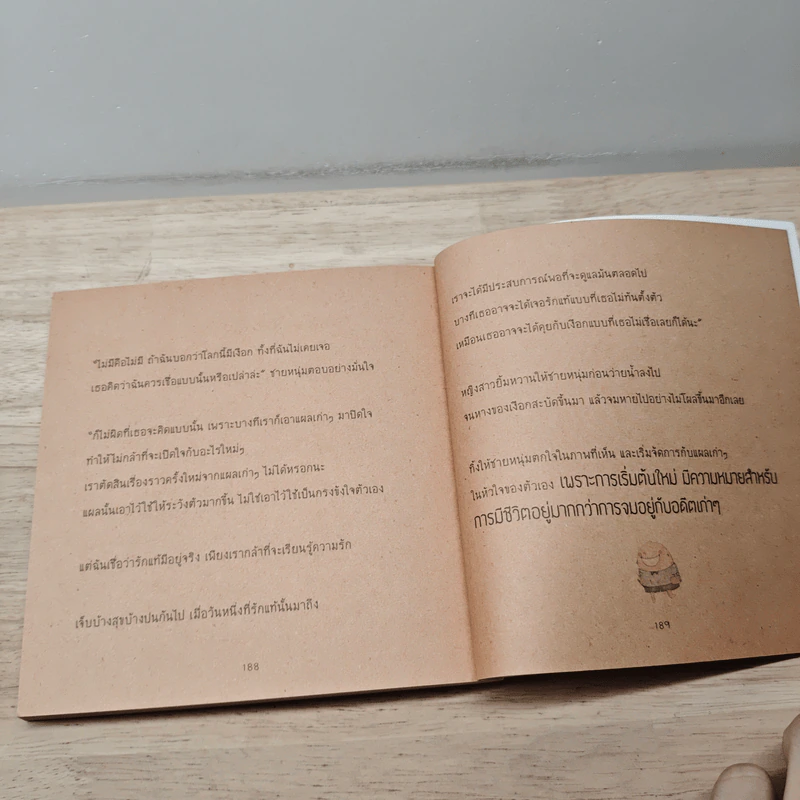 "ไม่มีคือไม่มี ถ้าฉันบอกว่าโลกนี้มีเงือก ทั้งที่ฉันไม่เคยเจอ
เธอคิดว่าฉันควรเชื่อแบบนั้นหรือเปล่าล่ะ" ชายหนุ่มตอบอย่างมั่นใจ
"ก็ไม่ผิดที่เธอจะคิดแบบนั้น เพราะบางทีเราก็เอาแผลเก่าๆ มาปิดใจ
ทำให้ไม่กล้าที่จะเปิดใจกับอะไรใหม่ๆ
เราตัดสินเรื่องราวครั้งใหม่จากแผลเก่าๆ ไม่ได้หรอกนะ
แผลนั้นเอาไว้ใช้ให้ระวังตัวมากขึ้น ไม่ใช่เอาไว้ใช้เป็นกรงขังใจตัวเอง
แต่ฉันเชื่อว่ารักแท้มีอยู่จริง เพียงเรากล้าที่จะเรียนรู้ความรัก
เจ็บบ้างสุขบ้างปนกันไป เมื่อวันหนึ่งที่รักแท้นั้นมาถึง
188
เราจะได้มีประสบการณ์พอที่จะดูแลมันตลอดไป
บางทีเธออาจจะได้เจอรักแท้แบบที่เธอไม่ทันตั้งตัว
เหมือนเธออาจจะได้คุยกับเงือกแบบที่เธอไม่เชื่อเลยก็ได้นะ"
หญิงสาวยิ้มหวานให้ชายหนุ่มก่อนว่ายน้ำลงไป
จนหางของเงือกสะบัดขึ้นมา แล้วจมหายไปอย่างไม่โผล่ขึ้นมาอีกเลย
ทิ้งให้ชายหนุ่มตกใจในภาพที่เห็น และเริ่มจัดการกับแผลเก่าๆ
ในหัวใจของตัวเอง เพราะการเริ่มต้นใหม่ มีความหมายสำหรับ
การมีชีวิตอยู่มากกว่าการจมอยู่กับอดีตเก่าๆ
189